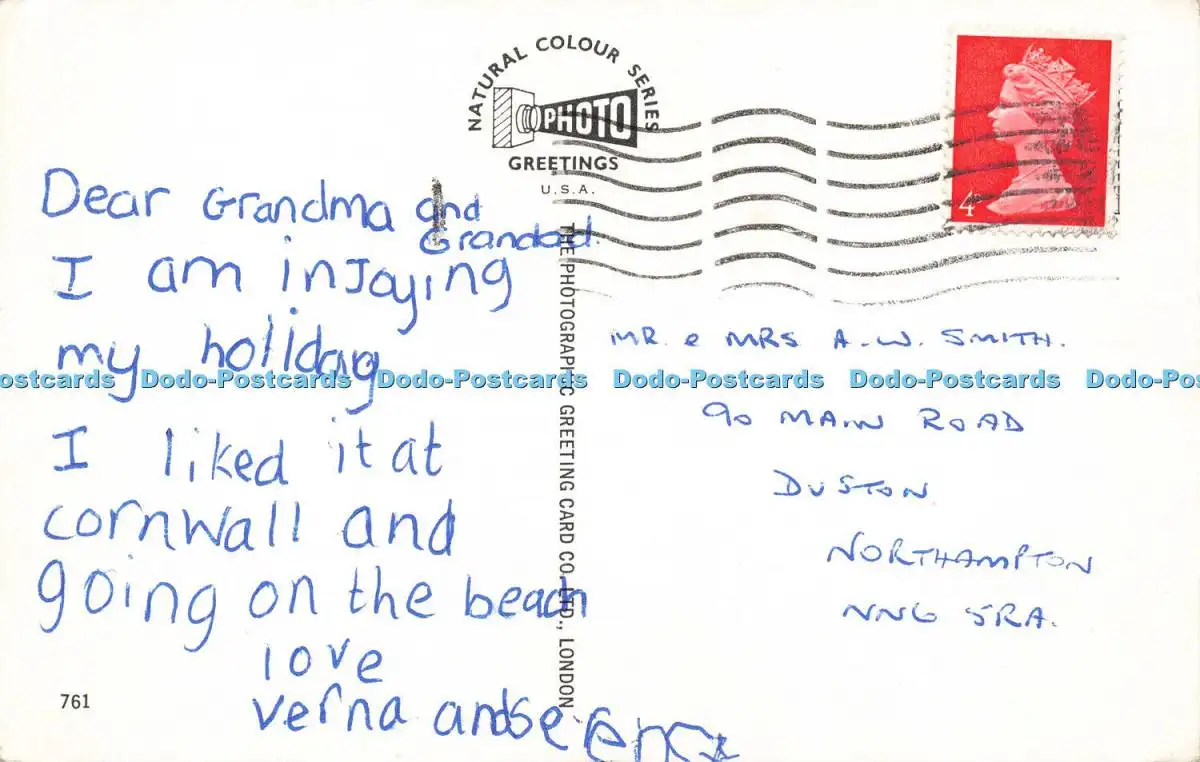 NATURAL COLOUR SERIES
PHOTO
GREETINGS
U.S.A.
4
Dear Grandma and
Grandad.
I am injoying
my holiday
I liked it at
cornwall and
going on the beach
love
verna and
761
THE PHOTOGRAPHIC GREETING CARD CO. LTD., LONDON
MR. e MRS A.W. SMITH.
90 MAIN ROAD
DUSTON
NORTHAMPTON
NN6 5RA.
ostcards Dodo-Postcards Dodo-Postcards Dodo-Postcards Dodo-Postcards Dodo-Pos